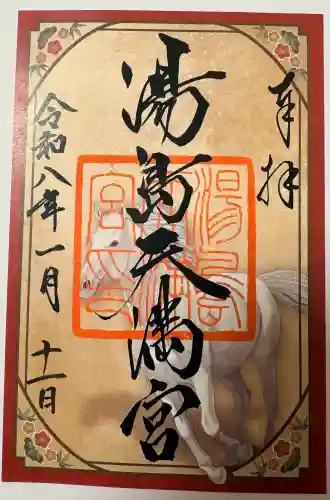 奉拝
湯島天満宮
令和八年一月
十一日